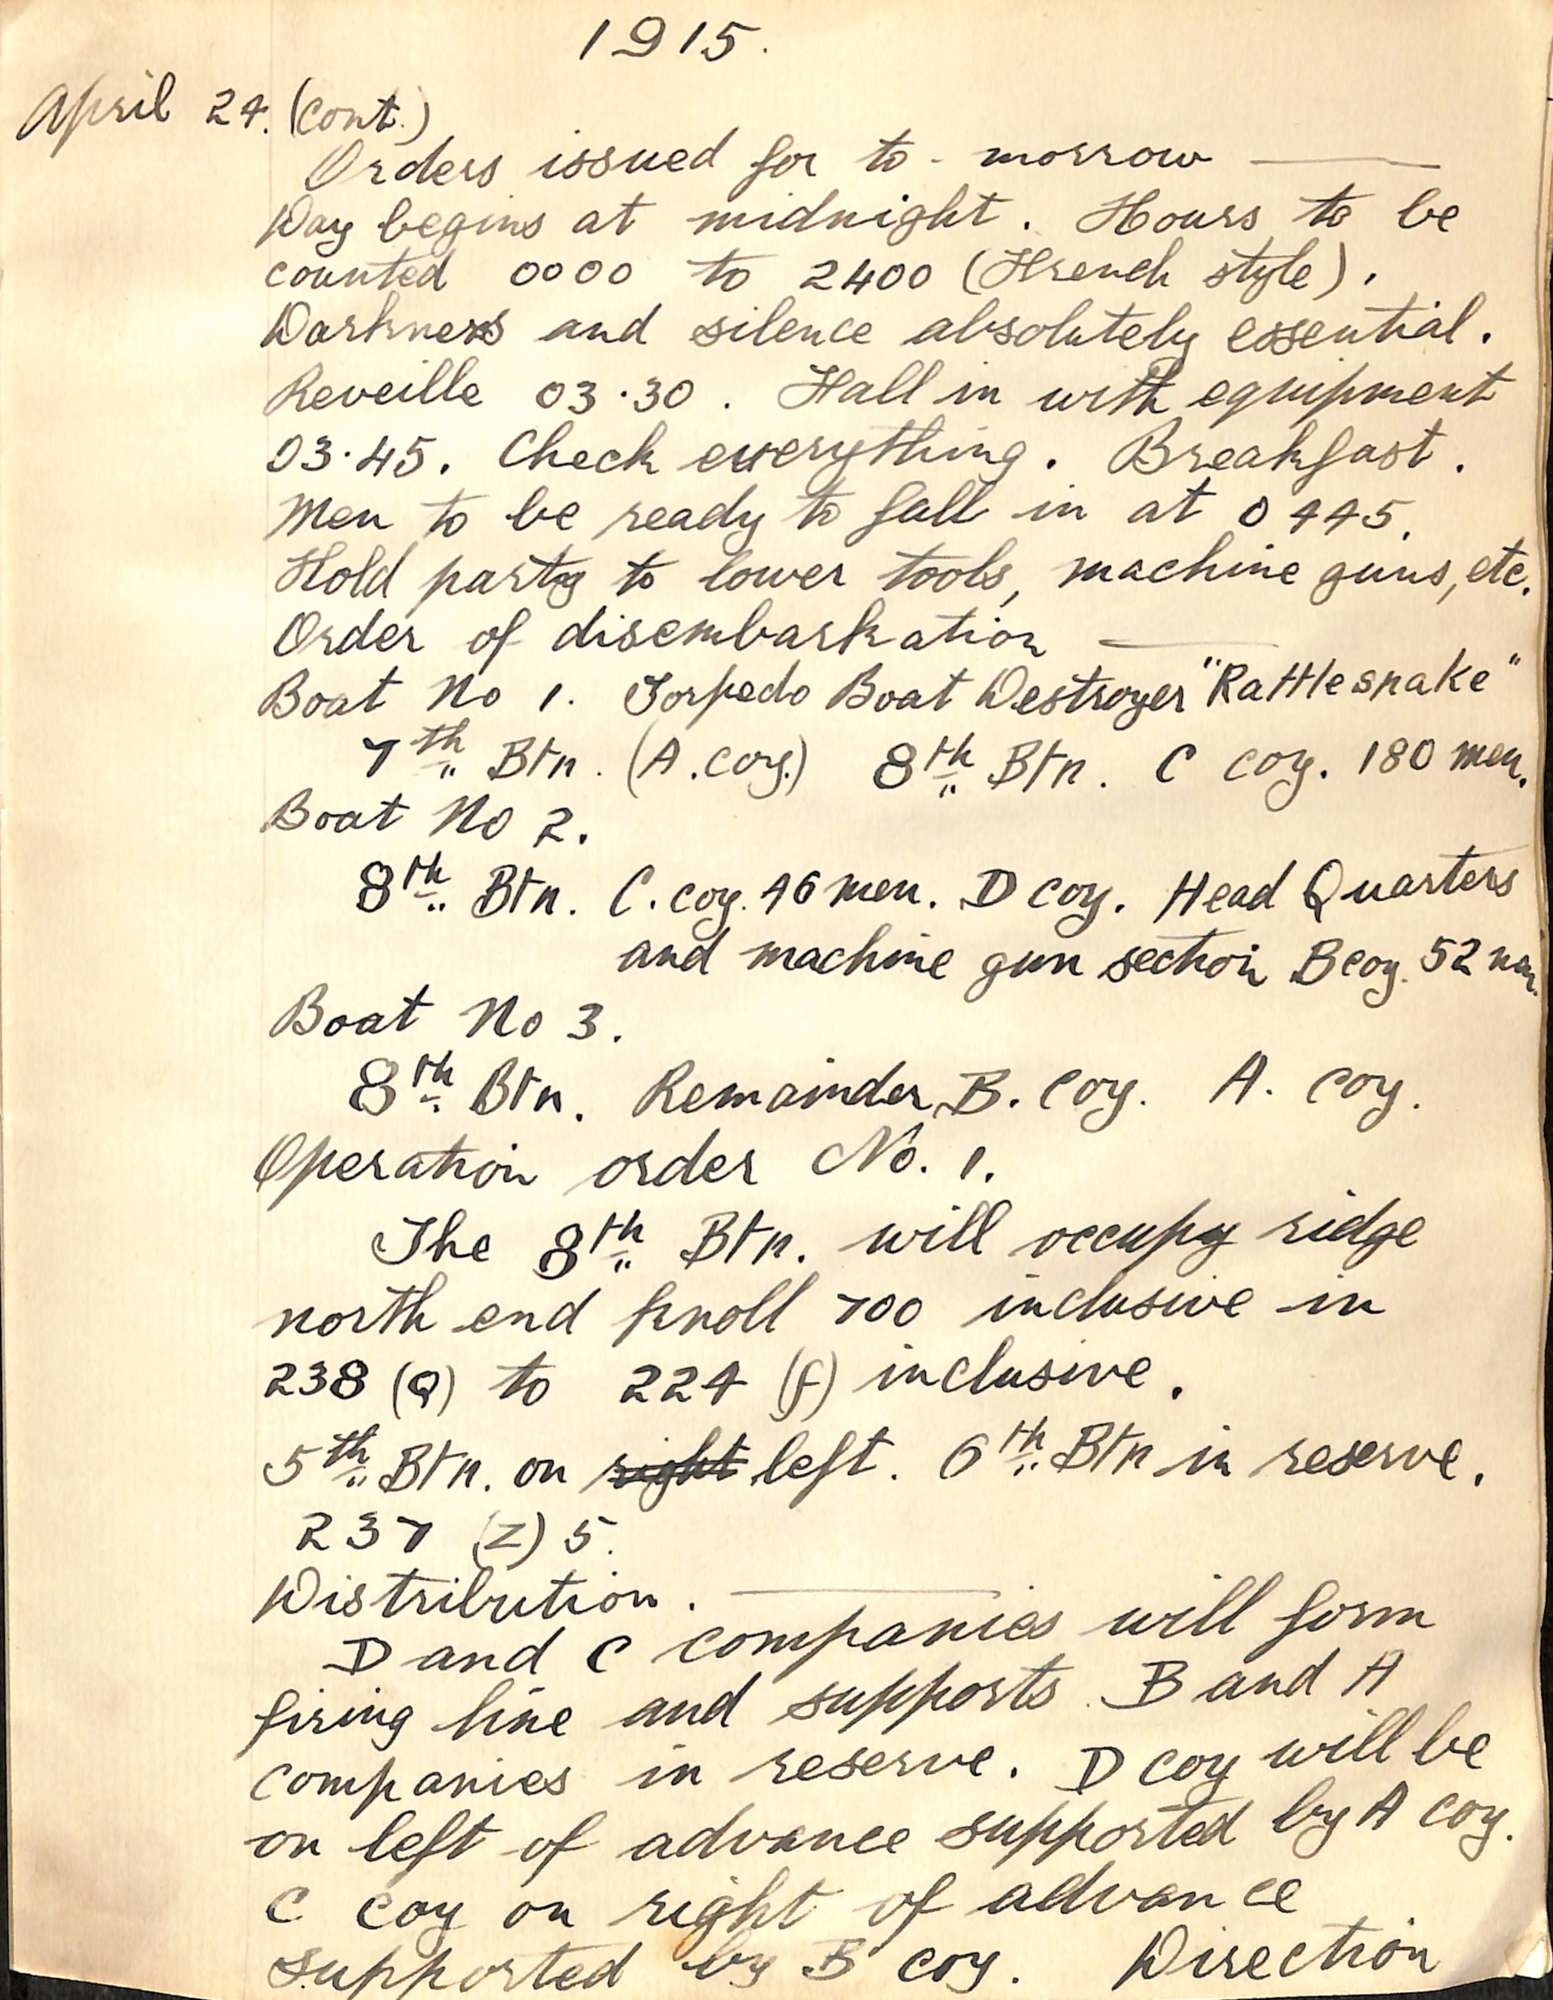 1915.
April 24. (cont.)
Orders issued for to-morrow ——
Day begins at midnight. Hours to be
counted 0000 to 2400 (French style).
Darkness and silence absolutely essential.
Reveille 03·30. Fall in with equipment
03·45. Check everything. Breakfast.
Men to be ready to fall in at 0445.
Hold party to lower tools, machine guns, etc.
Order of disembarkation ——
Boat No 1. Torpedo Boat Destroyer "Rattlesnake"
7th Btn. (A. coy.) 8th Btn. C coy. 180 men.
Boat No 2.
8th Btn. C. coy. 46 men. D coy. Head Quarters
and machine gun section B coy. 52 men.
Boat No 3.
8th Btn. Remainder B. coy. A. coy.
Operation order No. 1.
The 8th Btn. will occupy ridge
north end knoll 700 inclusive in
238 (Q) to 224 (f) inclusive.
5th Btn. on right left. 6th Btn in reserve.
237 (Z) 5.
Distribution. ——
D and C companies will form
firing line and supports. B and A
companies in reserve. D coy will be
on left of advance supported by A coy.
C coy on right of advance
supported by B coy. Direction